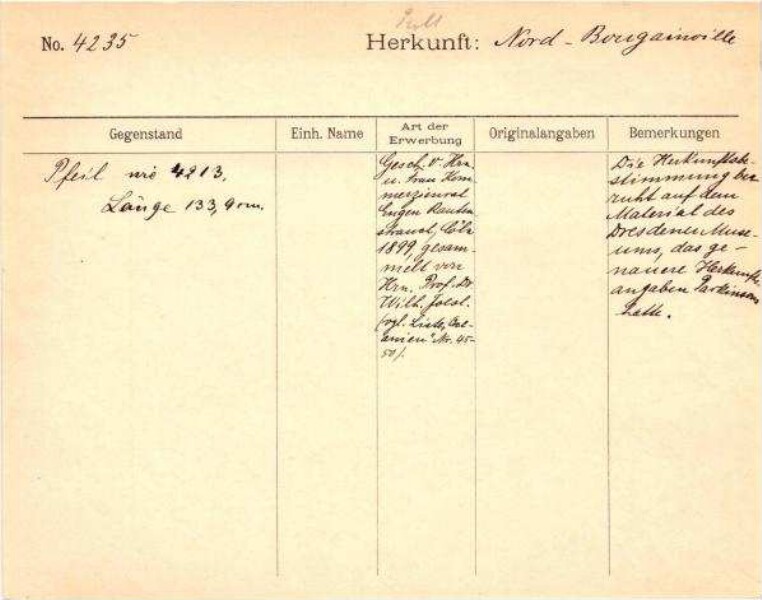 No. 4235
Herkunft: Nord-Bougainville
Gegenstand
Einh. Name
Art der Erwerbung
Originalangaben
Bemerkungen
Pfeil wie 4213.
Länge 133,9 cm.
Gesch. v. Hrn.
u. Frau Kom-
merzienrat
Eugen Rauten-
strauch, Cöln
1899, gesam-
melt von
Hrn. Prof. Dr.
Wilh. Joest.
(vgl. Liste, Oce-
anien" Nr. 45-
50).
Die Herkunftsbe-
stimmung be-
ruht auf dem
Material des
Dresdener Muse-
ums, das ge-
nauere Herkunfts-
angaben Parkinsons
hatte.